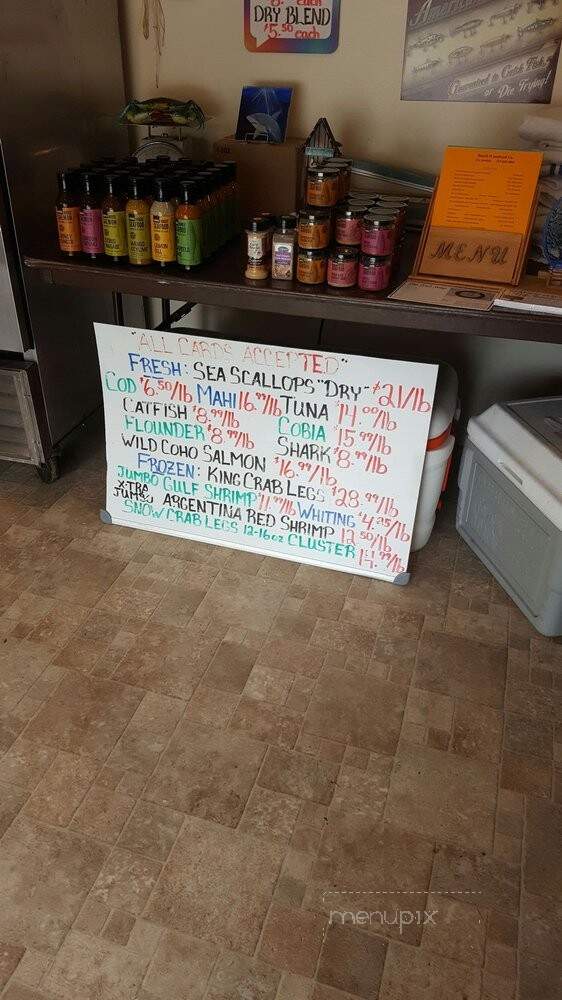 DRY BLEND
$5.50 each
American
Guaranteed to Catch Fish,
or Die Trying!
MENU
"ALL CARDS ACCEPTED"
FRESH: SEA SCALLOPS "DRY" $21/lb
COD $6.50/lb MAHI 16.99/lb TUNA $14.00/lb
CATFISH $8.99/lb COBIA $15.99/lb
FLOUNDER $8.99/lb SHARK $8.99/lb
WILD COHO SALMON $16.99/lb
FROZEN: KING CRAB LEGS $28.99/lb
JUMBO GULF SHRIMP 11.99/lb WHITING $4.25/lb
XTRA JUMBO ARGENTINA RED SHRIMP 12.50/lb
SNOW CRAB LEGS 12-16oz CLUSTER 14.99/lb
menupix